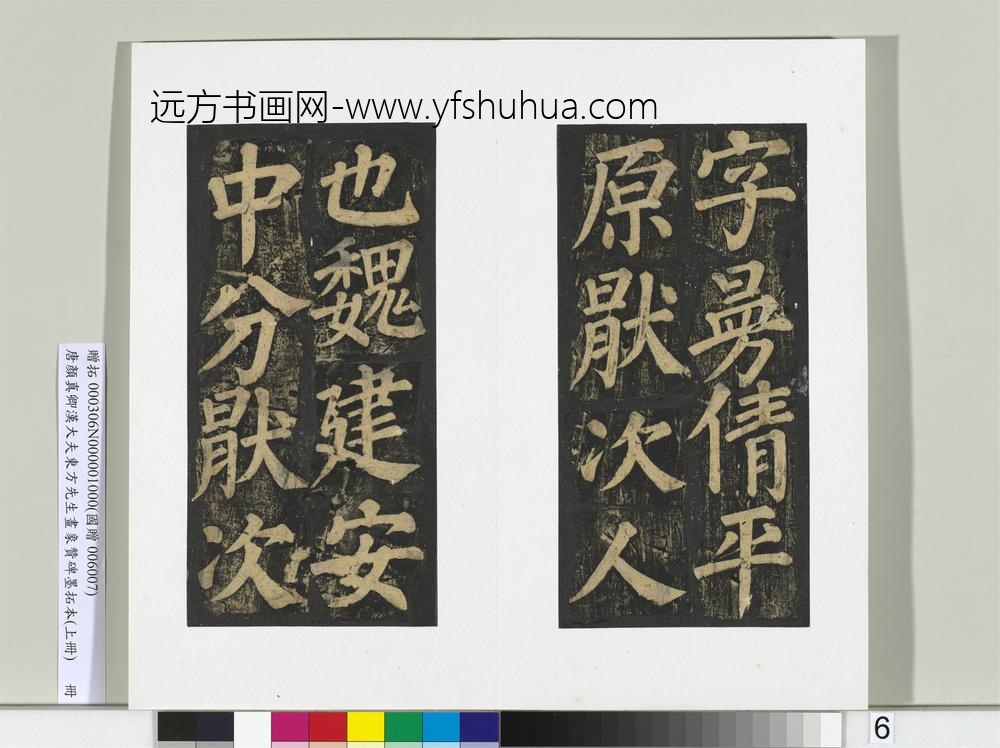 远方书画网-www.yfshuhua.com
字曼倩平
原厭次人
也魏建安
中分厭次
贈拓 000306N000001000(國贈 006007)
唐顏真卿漢大夫東方先生畫象贊碑墨拓本(上冊) 冊
6